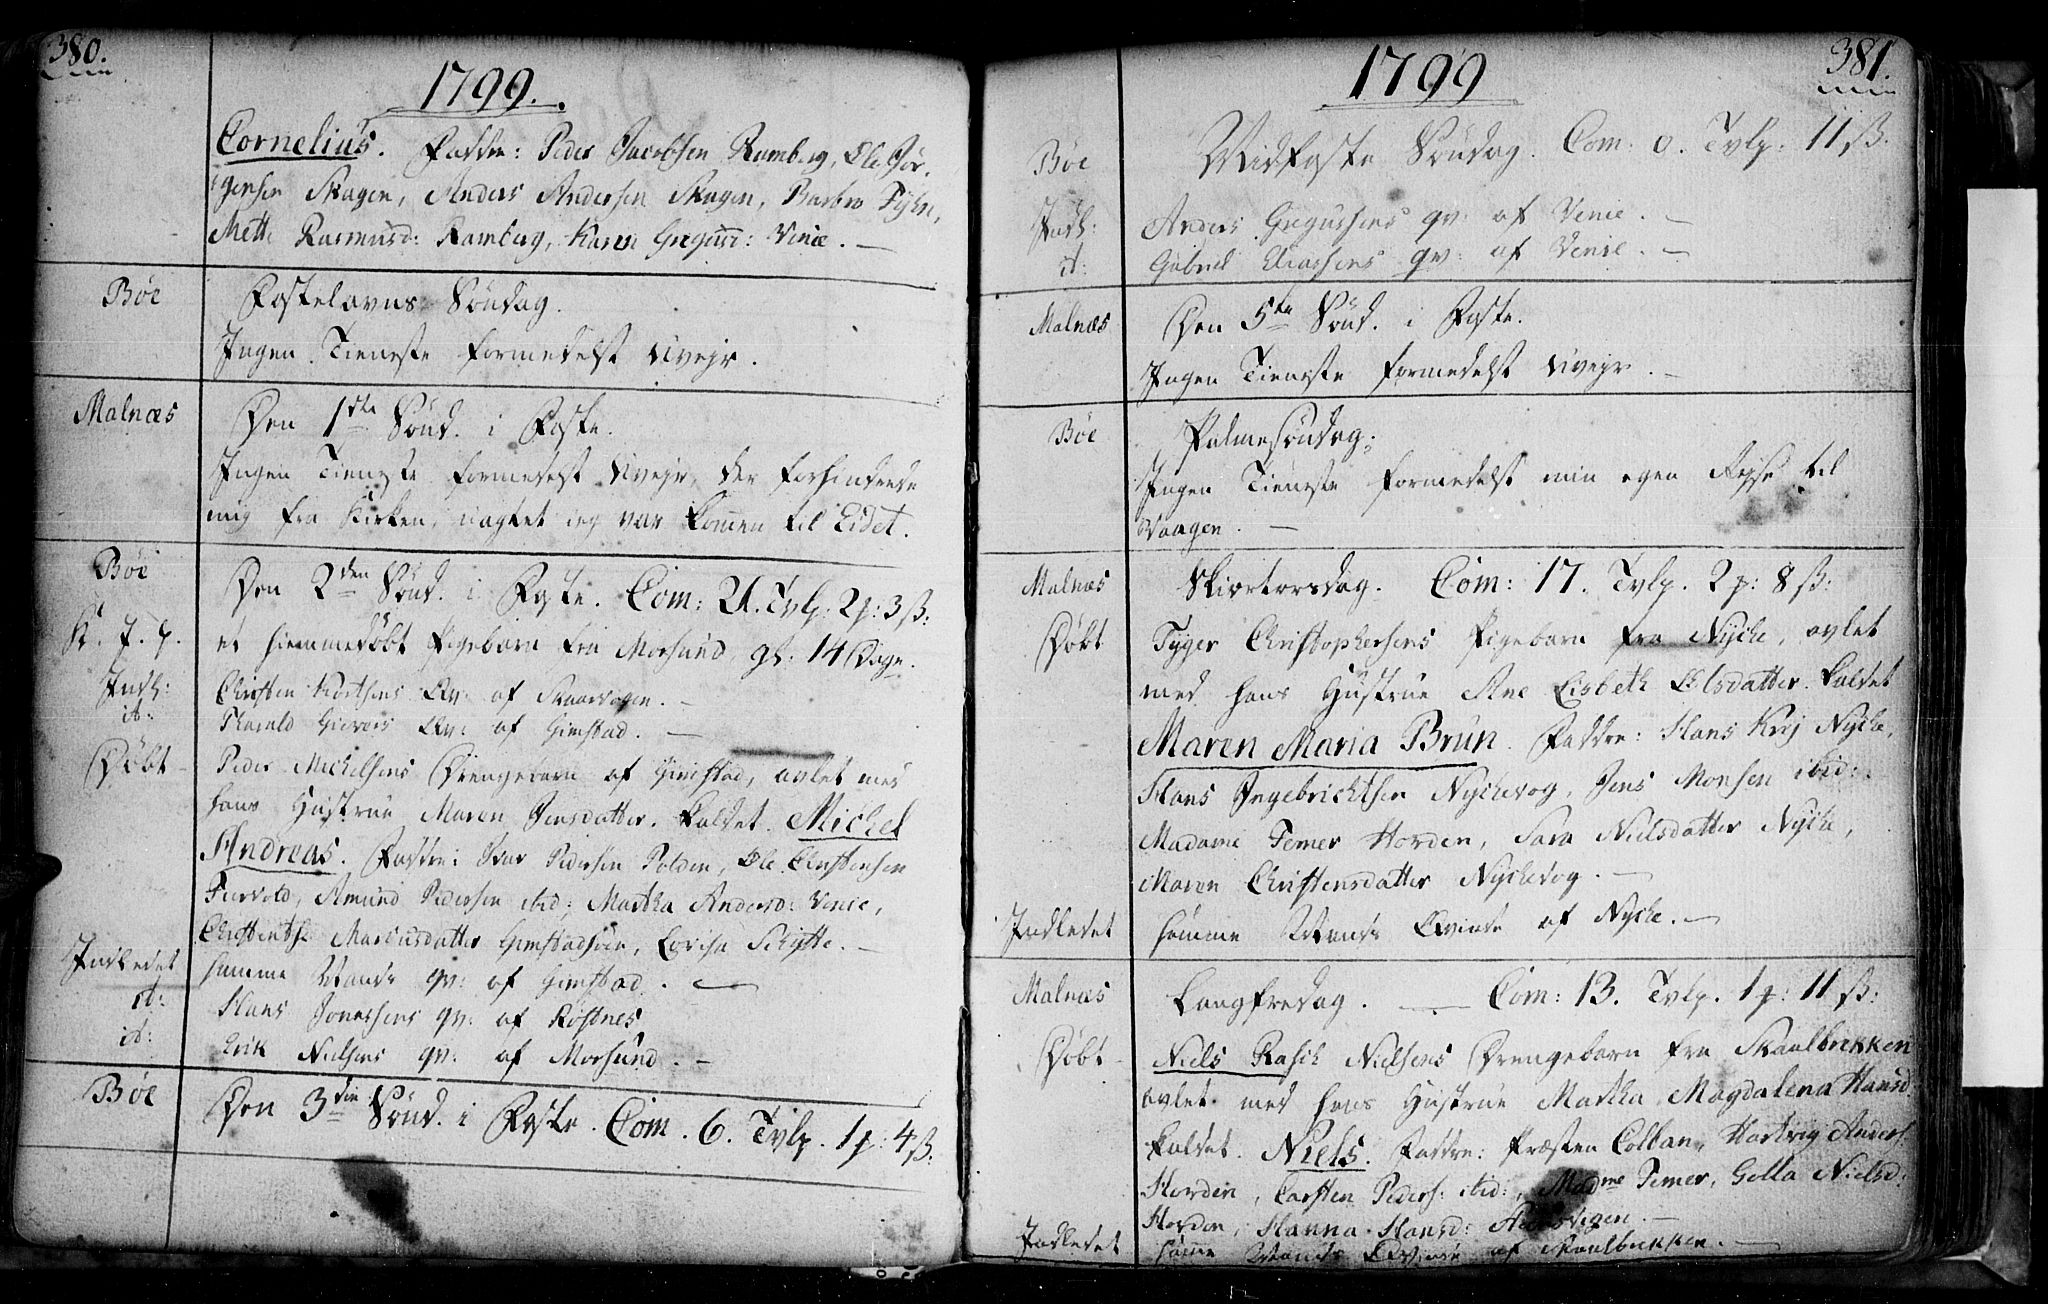 380.
1799.
Cornelius. Faddre: Peder Jacobsen Ramberg, Ole Jør-
gensen Skagen, Anders Andersen Skagen, Barbro Tyhn,
Mette Rasmusd: Ramberg, Karen Gregusd: Vinie. —
Bøe
Fastelavns Søndag.
Ingen Tieneste formedelst Uvejr.
Malnæs
Den 1ste Sønd. i Faste.
Ingen Tieneste formedelst Uvejr, der forhindrede
mig fra Kirken, uagtet jeg var kommen til Eidet.
Bøe
Den 2den Sønd. i Faste. Com: 21. Tvlp: 2p: 3ß:
K. J. P.
et hiemmedøbt Pigebarn fra Morsund, gl: 14 Dage.
Indl:
Christen Kortsens Qv: af Skaarvogen. —
it:
Tharald Giervers Qv: af Gimstad. —
Døbt
Peder Michelsens Drengebarn af Gimstad, avlet med
hans Hustrue Maren Jensdatter. kaldet. Michel
Andreas. Faddre: Ivar Pedersen Polden, Ole Christensen
Amund Pedersen ibid; Martha Andersd: Vinie,
Marcusdatter Gimstadøen, Lovisa Schytte. —
Indledet
samme Mands qv: af Gimstad. —
it:
Hans Jonassens qv: af Røstnes
it:
Erik Nielsens qv: af Morsund. —
Bøe
Den 3die Sønd. i Faste. Com. 6. Tvlp. 1p: 4ß:
381.
1799
Bøe
Midfaste Søndag. Com: 0. Tvlp: 11ß.
Indl:
Anders Gregussens qv: af Venie. —
it:
Gabriel Eliassens qv: af Venie. —
Malnæs
Den 5te Sønd. i Faste.
Ingen Tieneste formedelst Uvejr. —
Bøe
Palmesøndag.
Ingen Tieneste formedelst min egen Rejse til
Vaagen. —
Malnæs
Skiertorsdag. Com: 17. Tvlp. 2p: 8ß:
Døbt
Tyger Christophersens Pigebarn fra Nyche, avlet
med hans Hustrue Ane Lisbeth Olsdatter. kaldet
Maren Maria Brun. Faddre: Hans Krij Nyche,
Hans Ingebrichtsen Nychevog, Jens Monsen ibid:
Madame Jemer Horden, Sara Nielsdatter Nyche,
Maren Christensdatter Nychevog. —
Indledet
samme Mands Qvinde af Nyche. —
Malnæs
Langfredag. — Com: 13. Tvlp. 1p: 11ß:
Døbt
Niels Rasch Nielsens Drengebarn fra Skaalbrekken
avlet med hans Hustrue Martha Magdalena Hansd:
kaldet. Niels. Faddre: Præsten Colban, Hartvig Anders:
Horden, Carsten Peders: ibid:, Madme Jemer, Gella Nielsd:
Horden, Hanna Hansd:
Indledet
samme Mands Qvinde af Skaalbrekken. —